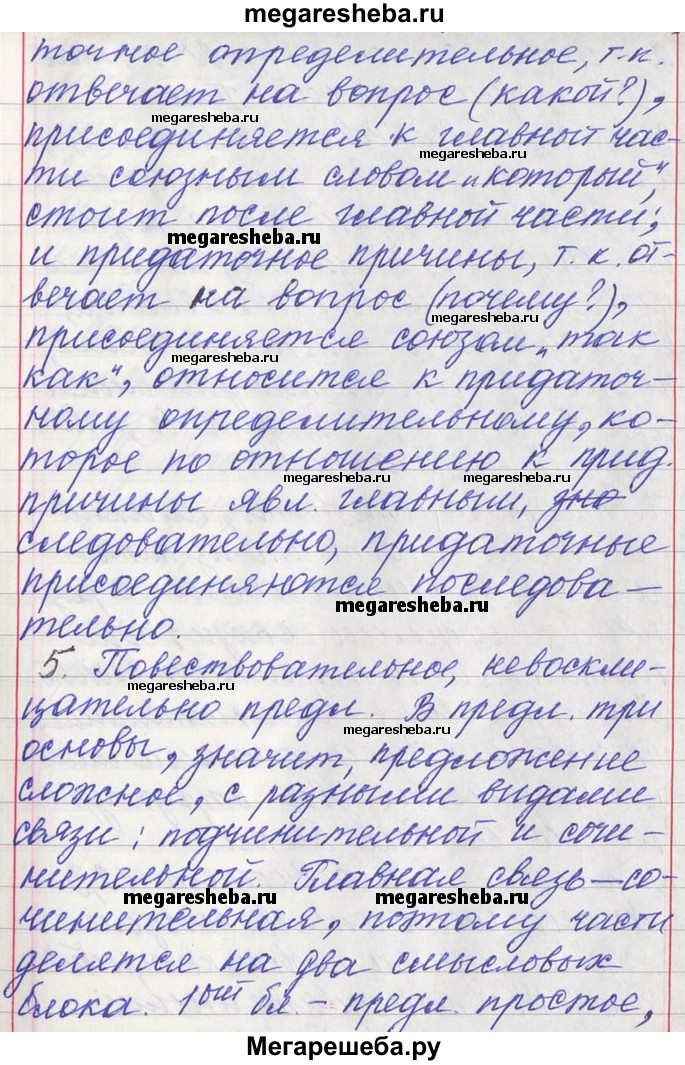 megaresheba.ru
точное определительное, т.к.
отвечает на вопрос (какой?),
megaresheba.ru
присоединяется к главной час-
megaresheba.ru
ти союзным словом „который“,
стоит после главной части;
megaresheba.ru
и придаточное причины, т.к. от-
вечает на вопрос (почему?),
megaresheba.ru
присоединяется союзом „так
megaresheba.ru
как“, относится к придаточ-
ному определительному, ко-
торое по отношению к прид.
megaresheba.ru megaresheba.ru
причины явл. главным,
следовательно, придаточные
присоединяются последова-
megaresheba.ru
тельно.
5. Повествовательное, невоскли-
megaresheba.ru
цательно предл. В предл. три
megaresheba.ru
основы, значит, предложение
сложное, с разными видами
связи: подчинительной и сочи-
нительной. Главная связь – со-
megaresheba.ru megaresheba.ru
чинительная, поэтому части
делятся на два смысловых
блока. 1ый бл. – предл. простое,
Мегарешеба.ру